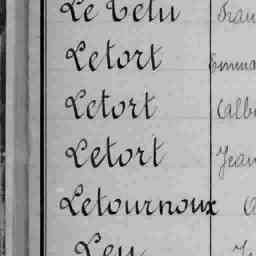 Le Tetu
Letort
Letort Albe
Letort Jean
Letournoux
Leu